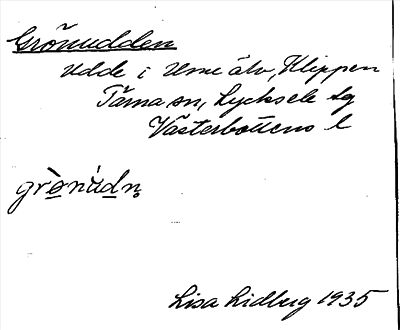 Grönudden
Udde i Ume älv, Klippen
Tärna sn, Lycksele lg
Västerbottens l
grö̀nu̇́dn̥
Lisa Lidberg 1935